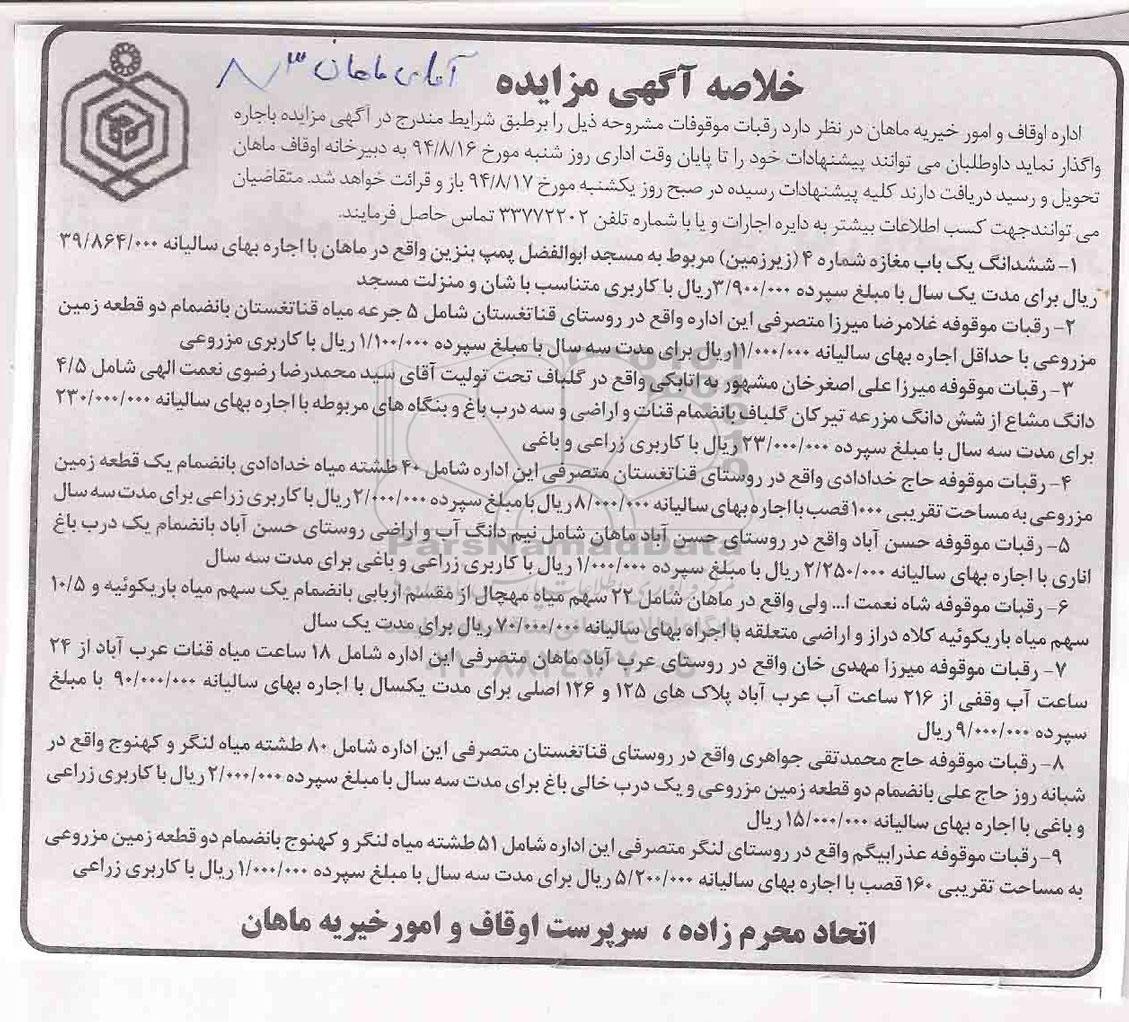 خلاصه آگهی مزایده
اداره اوقاف و امور خیریه ماهان در نظر دارد رقبات موقوفات مشروحه ذیل را برطبق شرایط مندرج در آگهی مزایده باجاره
واگذار نماید داوطلبان می توانند پیشنهادات خود را تا پایان وقت اداری روز شنبه مورخ ۹۴/۸/۱۶ به دبیرخانه اوقاف ماهان
تحویل و رسید دریافت دارند کلیه پیشنهادات رسیده در صبح روز یکشنبه مورخ ۹۴/۸/۱۷ باز و قرائت خواهد شد. متقاضیان
می توانندجهت کسب اطلاعات بیشتر به دایره اجارات و یا با شماره تلفن ۳۳۷۷۲۲۰۲ تماس حاصل فرمایند.
۱- ششدانگ یک باب مغازه شماره ۴ (زیرزمین) مربوط به مسجد ابوالفضل پمپ بنزین واقع در ماهان با اجاره بهای سالیانه ۳۹/۸۶۴/۰۰۰
ریال برای مدت یک سال با مبلغ سپرده ۳/۹۰۰/۰۰۰ریال با کاربری متناسب با شان و منزلت مسجد
۲- رقبات موقوفه غلامرضا میرزا متصرفی این اداره واقع در روستای قناتغستان شامل ۵ جرعه میاه قناتغستان بانضمام دو قطعه زمین
مزروعی با حداقل اجاره بهای سالیانه ۱۱/۰۰۰/۰۰۰ریال برای مدت سه سال با مبلغ سپرده ۱/۱۰۰/۰۰۰ ریال با کاربری مزروعی
۳- رقبات موقوفه میرزا علی اصغرخان مشهور به اتابکی واقع در گلباف تحت تولیت آقای سید محمدرضا رضوی نعمت الهی شامل ۴/۵
دانگ مشاع از شش دانگ مزرعه تیرکان گلباف بانضمام قنات و اراضی و سه درب باغ و بنگاه های مربوطه با اجاره بهای سالیانه ۲۳۰/۰۰۰/۰۰۰
برای مدت سه سال با مبلغ سپرده ۲۳/۰۰۰/۰۰۰ ریال با کاربری زراعی و باغی
۴- رقبات موقوفه حاج خدادادی واقع در روستای قناتغستان متصرفی این اداره شامل ۴۰ طشته میاه خدادادی بانضمام یک قطعه زمین
مزروعی به مساحت تقریبی ۱۰۰۰ قصب با اجاره بهای سالیانه ۸/۰۰۰/۰۰۰ ریال با مبلغ سپرده ۲/۰۰۰/۰۰۰ریال با کاربری زراعی برای مدت سه سال
۵- رقبات موقوفه حسن آباد واقع در روستای حسن آباد ماهان شامل نیم دانگ آب و اراضی روستای حسن آباد بانضمام یک درب باغ
اناری با اجاره بهای سالیانه ۲/۲۵۰/۰۰۰ ریال با مبلغ سپرده ۱/۰۰۰/۰۰۰ ریال با کاربری زراعی و باغی برای مدت سه سال
۶- رقبات موقوفه شاه نعمت ا... ولی واقع در ماهان شامل ۲۲ سهم میاه مهچال از مقسم اربابی بانضمام یک سهم میاه باریکوئیه و ۱۰/۵
سهم میاه باریکوئیه کلاه دراز و اراضی متعلقه با اجراه بهای سالیانه ۷۰/۰۰۰/۰۰۰ ریال برای مدت یک سال
۷- رقبات موقوفه میرزا مهدی خان واقع در روستای عرب آباد ماهان متصرفی این اداره شامل ۱۸ ساعت میاه قنات عرب آباد از ۲۴
ساعت آب وقفی از ۲۱۶ ساعت آب عرب آباد پلاک های ۱۲۵ و ۱۲۶ اصلی برای مدت یکسال با اجاره بهای سالیانه ۹۰/۰۰۰/۰۰۰ با مبلغ
سپرده ۹/۰۰۰/۰۰۰ ریال
۸- رقبات موقوفه حاج محمدتقی جواهری واقع در روستای قناتغستان متصرفی این اداره شامل ۸۰ طشته میاه لنگر و کهنوج واقع در
شبانه روز حاج علی بانضمام دو قطعه زمین مزروعی و یک درب خالی باغ برای مدت سه سال با مبلغ سپرده ۲/۰۰۰/۰۰۰ ریال با کاربری زراعی
و باغی با اجاره بهای سالیانه ۱۵/۰۰۰/۰۰۰ ریال
۹- رقبات موقوفه عذرابیگم واقع در روستای لنگر متصرفی این اداره شامل ۵۱ طشته میاه لنگر و کهنوج بانضمام دو قطعه زمین مزروعی
به مساحت تقریبی ۱۶۰ قصب با اجاره بهای سالیانه ۵/۲۰۰/۰۰۰ ریال برای مدت سه سال با مبلغ سپرده ۱/۰۰۰/۰۰۰ ریال با کاربری زراعی
اتحاد محرم زاده، سرپرست اوقاف و امورخیریه ماهان
ParsNamadData